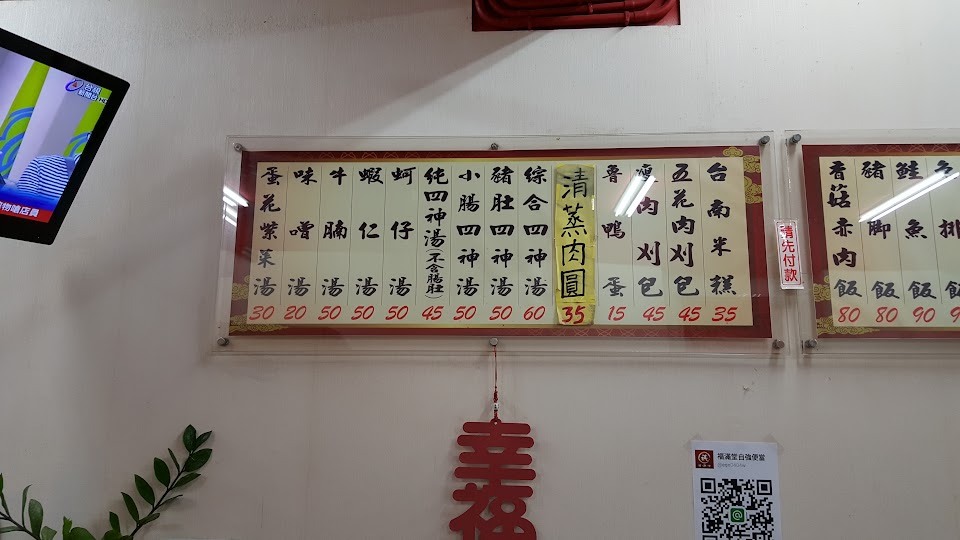 台視
新聞台 HD
物嗆店員
台南米糕 35
五花肉刈包 45
瘦肉刈包 45
魯鴨蛋 15
清蒸肉圓 35
綜合四神湯 60
豬肚四神湯 50
小腸四神湯 50
純四神湯(不含腸肚) 45
蚵仔湯 50
蝦仁湯 50
牛腩湯 50
味噌湯 20
蛋花紫菜湯 30
請先付款
鮭魚飯 90
豬脚飯 80
香菇赤肉飯 80
幸福
福滿堂自強便當